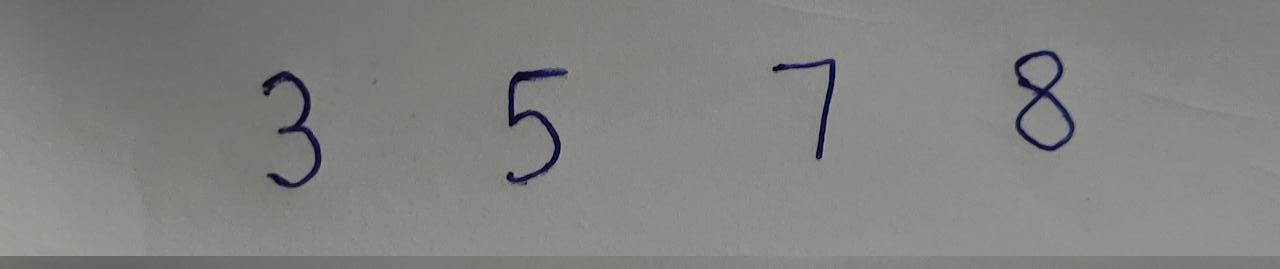 3 5 7 8